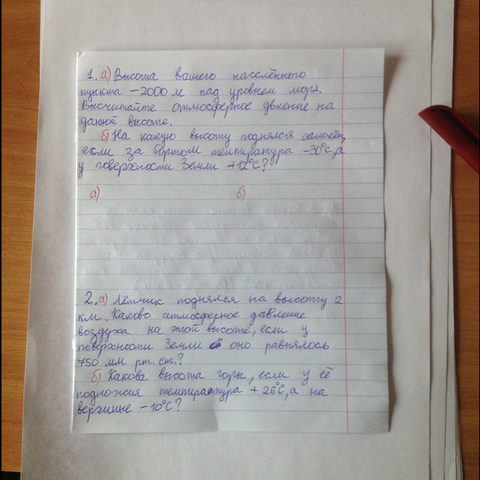 1. а) Высота вашего населённого
пункта –2000 м над уровнем моря.
Высчитайте атмосферное двление на
данной высоте.
б) На какую высоту поднялся самолёт,
если за бортом температура –30°С, а
у поверхности Земли +12°С?
а) б)
2. а) Лётчик поднялся на высоту 2
км. Каково атмосферное давление
воздуха на этой высоте, если у
поверхности Земли оно равнялось
750 мм рт. ст.?
б) Какова высота горы, если у её
подножия температура + 26°С, а на
вершине –10°С?